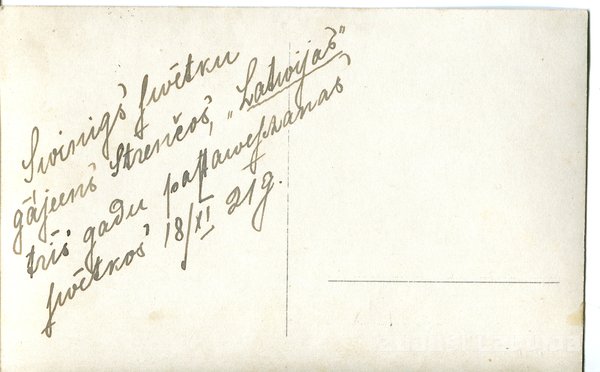 Swinigs swētku
gājeens Strenčos, „Latwijas"
tris gadu pastawešanas
swētkos 18/XI 21g.